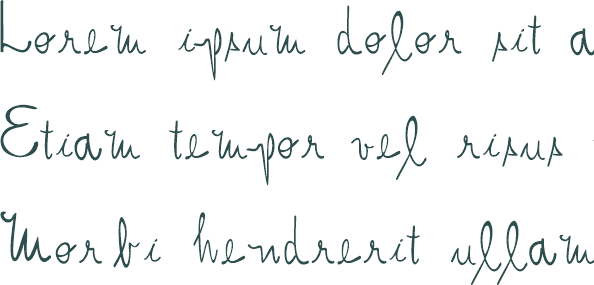 Lorem ipsum dolor sit a
Etiam tempor vel risus
Morbi hendrerit ullam